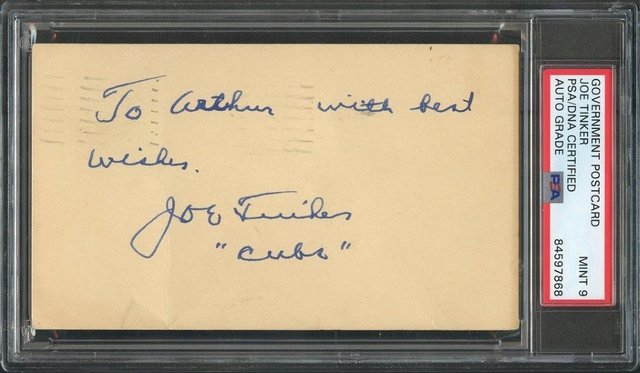 To Arthur with best
wishes.
Joe Tinker
"Cubs"
GOVERNMENT POSTCARD
JOE TINKER
PSA/DNA CERTIFIED
AUTO GRADE
MINT 9
PSA
84597868